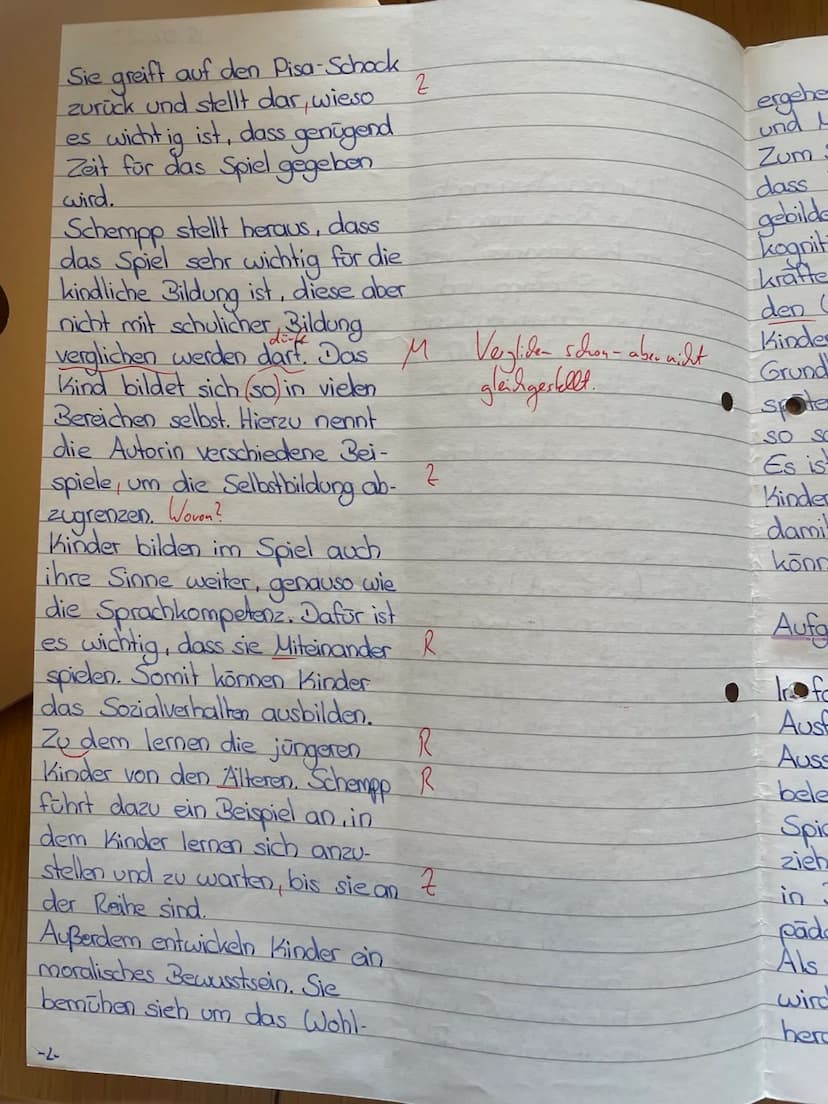 Sie greift auf den Pisa-Schock
zurück und stellt dar, wieso Z
es wichtig ist, dass genügend
Zeit für das Spiel gegeben
wird.
Schempp stellt heraus, dass
das Spiel sehr wichtig für die
kindliche Bildung ist, diese aber
nicht mit schulicher Bildung
dürfe
verglichen werden darf. Das M Verglichen schon - aber nicht
Kind bildet sich (so) in vielen gleichgestellt.
Bereichen selbst. Hierzu nennt
die Autorin verschiedene Bei-
spiele, um die Selbstbildung ab- Z
zugrenzen. Wovon?
Kinder bilden im Spiel auch
ihre Sinne weiter, genauso wie
die Sprachkompetenz. Dafür ist
es wichtig, dass sie Miteinander R
spielen. Somit können Kinder
das Sozialverhalten ausbilden.
Zu dem lernen die jüngeren R
Kinder von den Älteren. Schempp R
führt dazu ein Beispiel an, in
dem Kinder lernen sich anzu-
stellen und zu warten, bis sie an Z
der Reihe sind.
Außerdem entwickeln Kinder ein
moralisches Bewusstsein. Sie
bemühen sich um das Wohl-
-2-
ergehe
und
Zum
dass
gebilde
kognit
kräfte
den
Kinder
Grund
späte
so so
Es ist
Kinder
dami
könn
Aufg
In fo
Ausf
Auss
bele
Spie
zieh
in
päd
Als
wird
hera